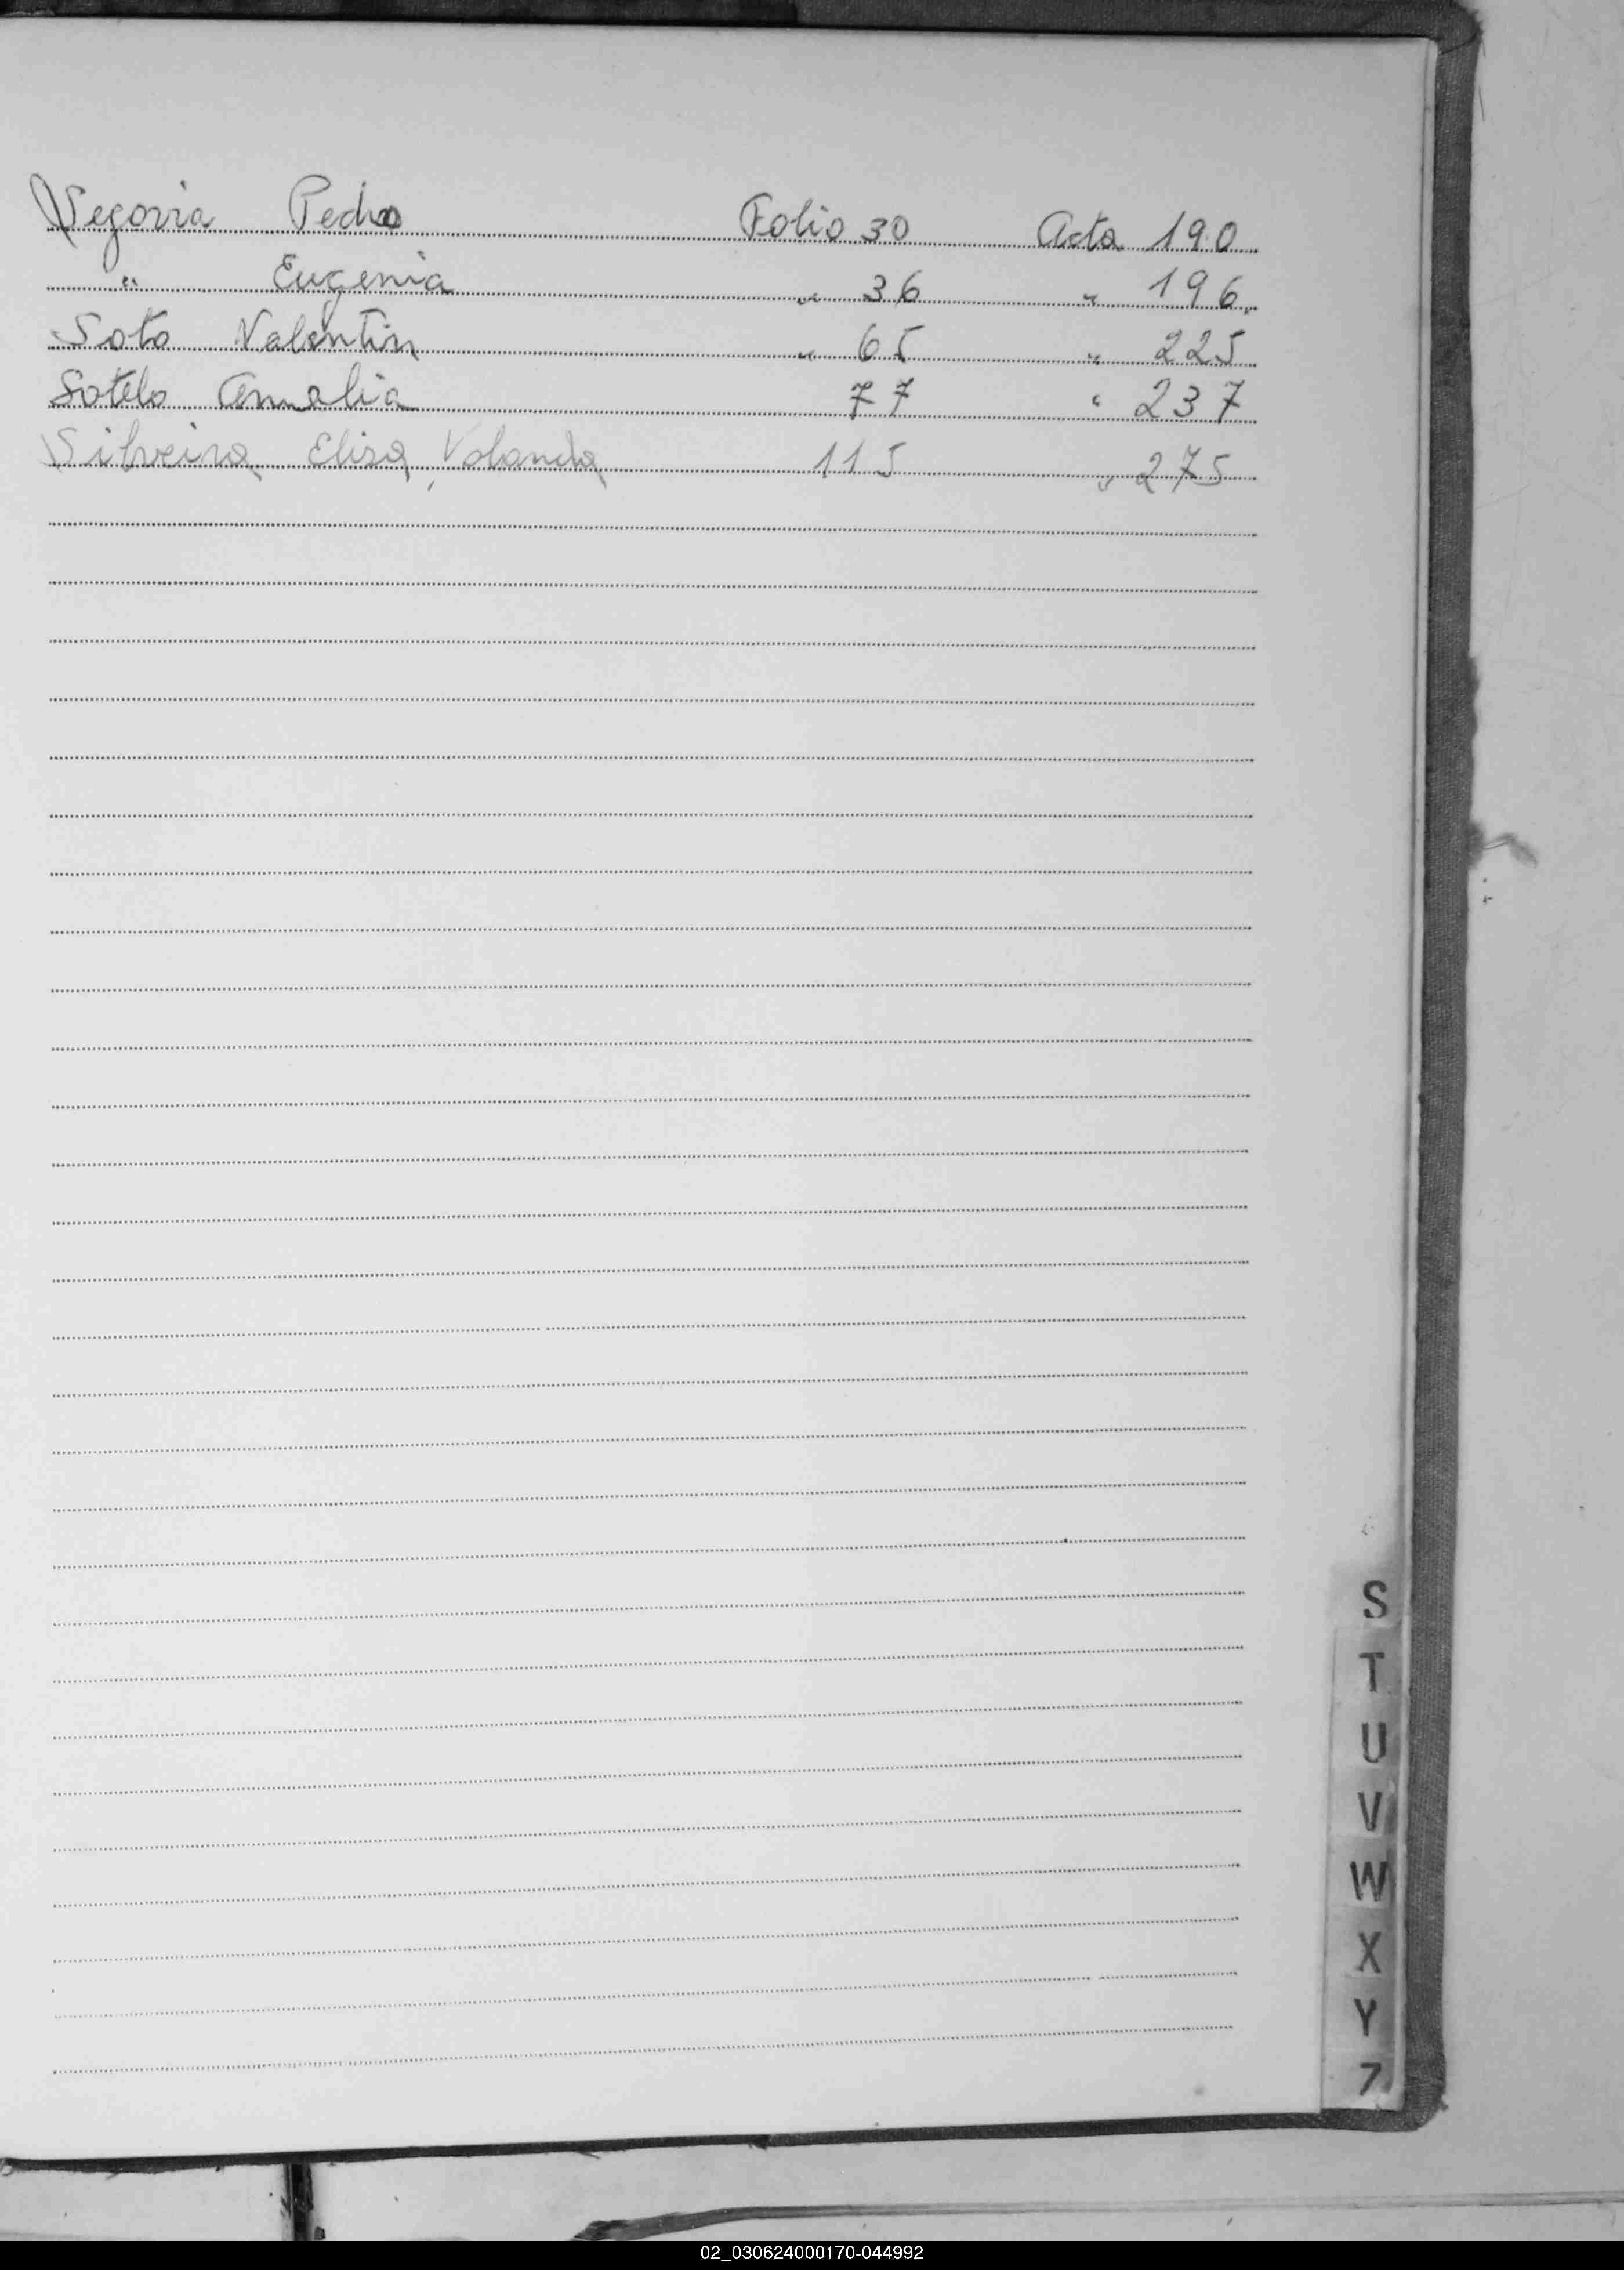 Segovia Pedro Folio 30 Acta 190
" Eugenia " 36 " 196
Soto Valentin " 65 " 225
Sotelo Amalia 77 " 237
Silveira Elisa Yolanda 115 " 275
S
T
U
V
W
X
Y
Z
02_030624000170-044992